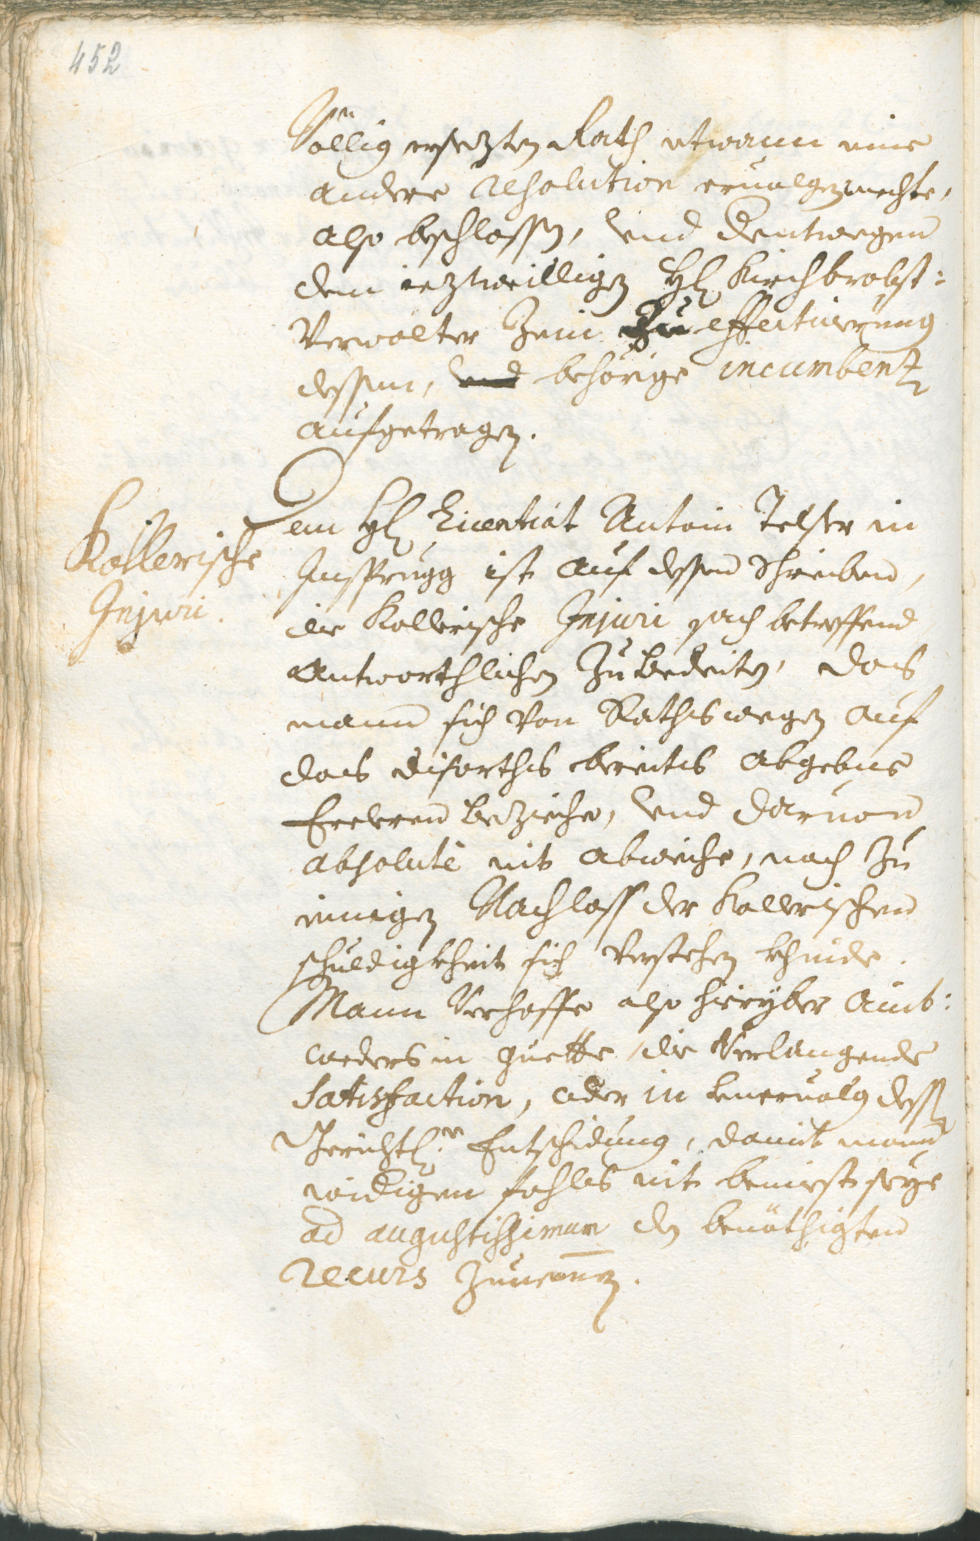 452
Völlig ersezten Rath etwann eine
andere resolution ervolgen mechte,
also beschlossen, und dentwegen
dem iezweilligen Hl Kirchbrobst=
Verwalter Zein zu effectuierung
dessen, und behörige incumbenz
aufgetragen.
Kollerische
Injuri.
Dem Hl Licentiat Antoni Telser in
Insprugg ist auf dessen Schreiben,
die Kollerische Injuri sach betreffend
antworthlichen zu bedeiten, das
mann sich von Rathswegen auf
das diserthis bereits abgebene
beziehe, und darvon
absolutè nit abweiche, noch zu
einigen Nachlass der Kollerischen
schuldigkheit sich verstehen khinde.
Mann verhoffe also hierüber aint=
weders in guette die verlangende
Satisfaction, oder in dess
Gerichtl.e Entscheidung, damit mann
widrigen fahls nit seye
ad augustissimum den benöthigten
recurs zunemen.